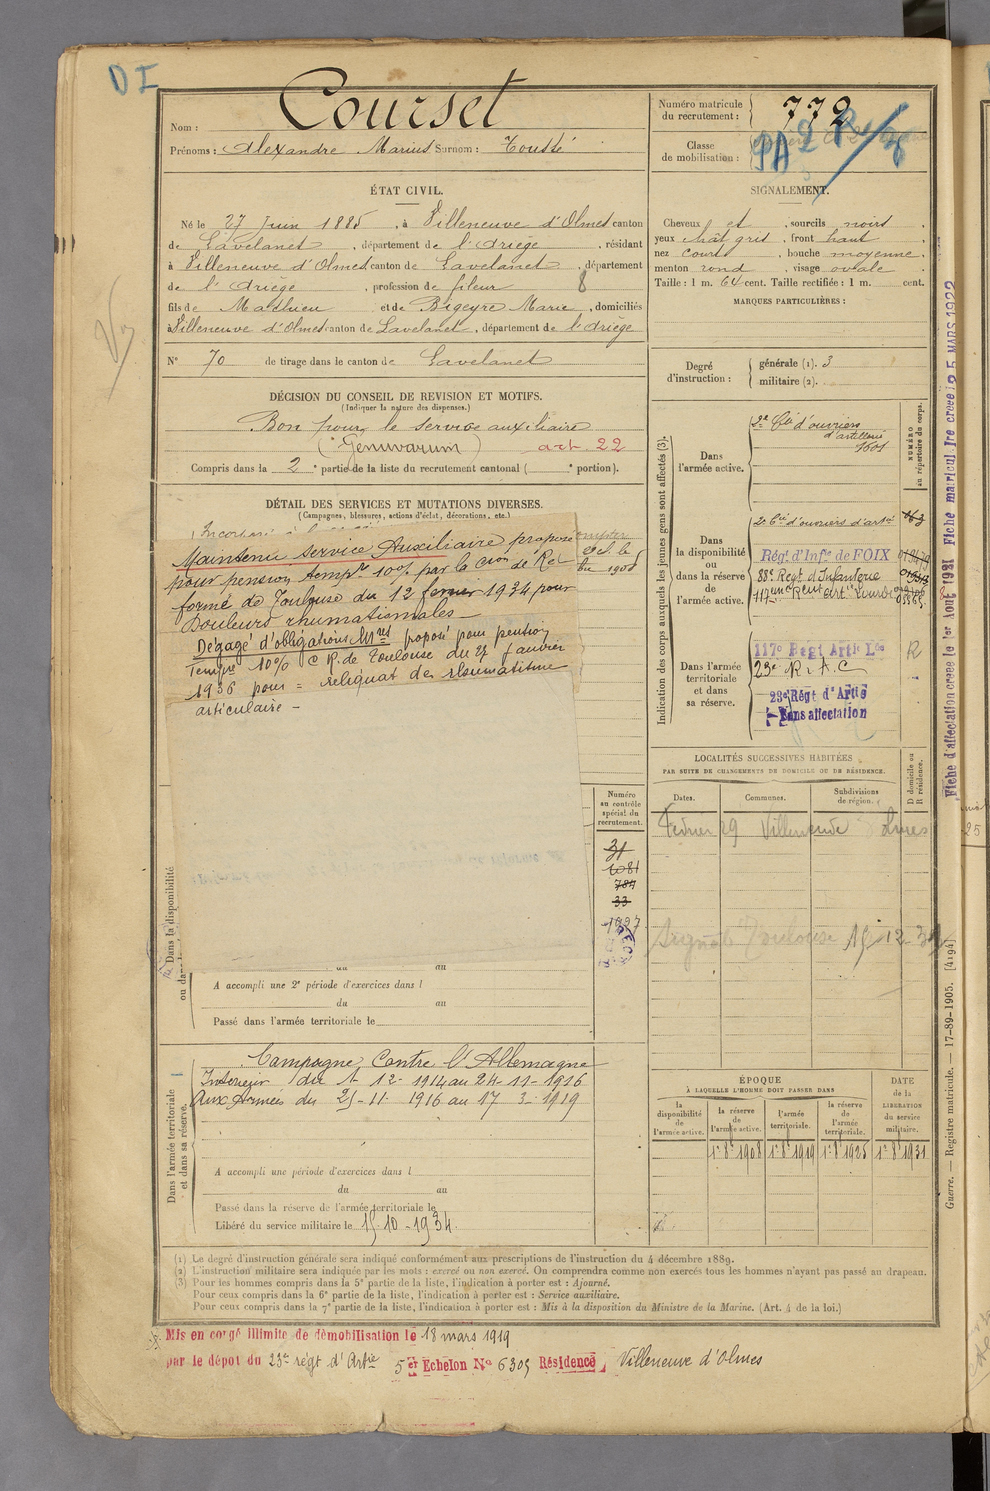 D I
Nom : Courset
Prénoms : Alexandre Marius Surnom : Toussé
Numéro matricule du recrutement : 772
Classe de mobilisation :
ÉTAT CIVIL.
Né le 27 Juin 1885, à Villeneuve d'Olmes canton
de Lavelanet, département de l'Ariège, résidant
à Villeneuve d'Olmes canton de Lavelanet, département
de l'Ariège, profession de fileur 8
fils de Mathieu et de Bigeyre Marie, domiciliés
à Villeneuve d'Olmes canton de Lavelanet, département de l'Ariège
N° 70 de tirage dans le canton de Lavelanet
DÉCISION DU CONSEIL DE REVISION ET MOTIFS.
(Indiquer la nature des dispenses.)
Bon pour le service auxiliaire
(Genuvarum) art 22
Compris dans la 2e partie de la liste du recrutement cantonal ( e portion).
DÉTAIL DES SERVICES ET MUTATIONS DIVERSES.
(Campagnes, blessures, actions d'éclat, décorations, etc.)
Maintenu service Auxiliaire proposé
pour pension tempre 10% par la Cion de Ré
forme de Toulouse du 12 février 1934 pour
Douleurs rhumatismales
Dégagé d'obligations Mres proposé pour pension
Tempre 10% C R. de Toulouse du 27 janvier
1936 pour = reliquat de rhumatisme
articulaire -
SIGNALEMENT.
Cheveux et, sourcils noirs
yeux chât gris, front haut
nez court, bouche moyenne,
menton rond, visage ovale
Taille : 1 m. 64 cent. Taille rectifiée : 1 m. cent.
MARQUES PARTICULIÈRES :
Degré d'instruction : générale (1). 3
militaire (2).
Indication des corps auxquels les jeunes gens sont affectés (3).
NUMÉRO au répertoire du corps.
Dans l'armée active.
2e Cie d'ouvriers
d'artillerie
1601
Dans la disponibilité ou dans la réserve de l'armée active.
2e Cie d'ouvriers d'artie
Régt d'Infie de FOIX
88e Régt d'Infanterie
Dans l'armée territoriale et dans sa réserve.
117e Régt Artie Lde R
23e R. A. C
23e Régt d'Artie
Sans affectation
LOCALITÉS SUCCESSIVES HABITÉES
PAR SUITE DE CHANGEMENTS DE DOMICILE OU DE RÉSIDENCE.
Dates.
Communes.
Subdivisions de région.
D domicile ou R résidence.
Toulouse 15 12
Numéro au contrôle spécial du recrutement.
31
1081
784
33
Dans la disponibilité
A accompli une 2e période d'exercices dans l
du au
Passé dans l'armée territoriale le
Dans l'armée territoriale et dans sa réserve.
Campagne Contre l'Allemagne
Intérieur du 1- 12- 1914 au 24-11-1916
Aux Armées du 25-11- 1916 au 17 3- 1919
A accompli une période d'exercices dans l
du au
Passé dans la réserve de l'armée territoriale le
Libéré du service militaire le 15-10-1934.
ÉPOQUE
À LAQUELLE L'HOMME DOIT PASSER DANS
la disponibilité de l'armée active.
la réserve de l'armée active.
l'armée territoriale.
la réserve de l'armée territoriale.
DATE de la LIBÉRATION du service militaire.
1r 8e 1908 1r 8e 1919 1r 8e 1925 1r 8e 1931
(1) Le degré d'instruction générale sera indiqué conformément aux prescriptions de l'instruction du 4 décembre 1889.
(2) L'instruction militaire sera indiquée par les mots : exercé ou non exercé. On comprendra comme non exercés tous les hommes n'ayant pas passé au drapeau.
(3) Pour les hommes compris dans la 5e partie de la liste, l'indication à porter est : Ajourné.
Pour ceux compris dans la 6e partie de la liste, l'indication à porter est : Service auxiliaire.
Pour ceux compris dans la 7e partie de la liste, l'indication à porter est : Mis à la disposition du Ministre de la Marine. (Art. 4 de la loi.)
Mis en congé illimité de démobilisation le 18 mars 1919
par le dépot du 23e régt d'Artie 5e Echelon No 6305 Résidence Villeneuve d'Olmes
Fiche d'affectation créée le 1er Août 1921 Fiche matricule créée le 25 MARS 1922
Guerre. — Registre matricule. — 17-89-1905. [4194]